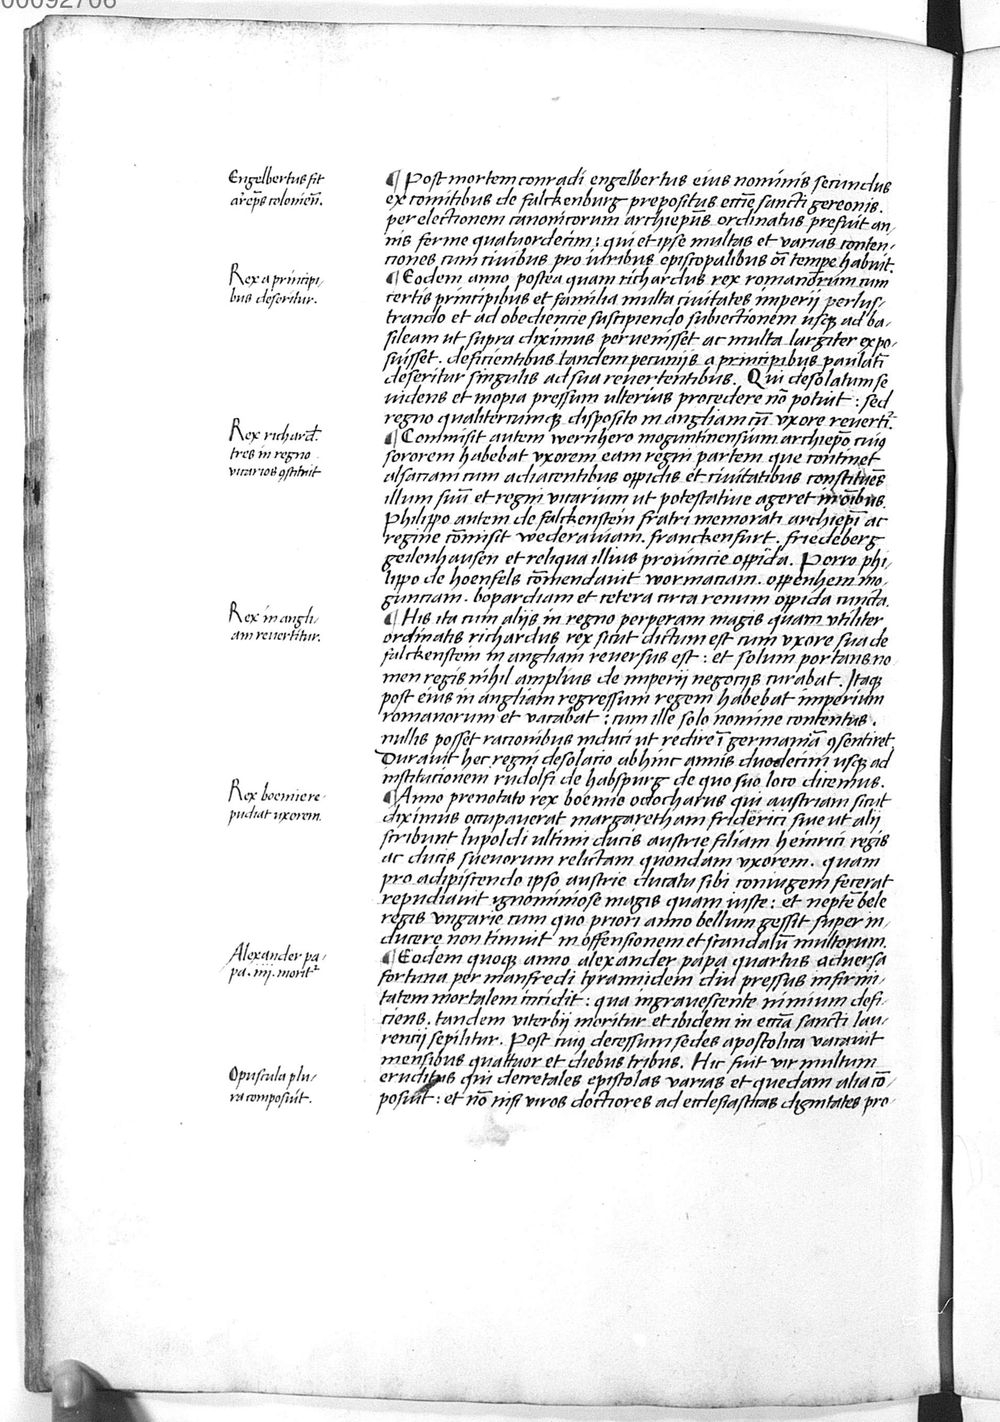 00092706
Engelbertus fit
ar̄ep̄s colonieñ.
¶ Post mortem conradi engelbertus eius nominis secundus
ex comitibus de falckenburg prepositus ecc̄ie sancti gereonis.
per electionem canonicorum archiep̄us ordinatus prefuit an-
nis ferme quatuordecim: qui et ipse multas et varias conten-
ciones cum ciuibus pro iuribus episcopalibus oī tempe habuit.
Rex a principi-
bus deseritur.
¶ Eodem anno postea quam richardus rex romanorum cum
certis principibus et familia multa ciuitates imperij perlus-
trando et ad obediencie suscipiendo subiectionem usqꝫ ad ba-
sileam ut supra diximus peruenisset ac multa largiter expo-
suisset. deficientibus tandem pecunijs a principibus paulatī
deseritur singulis ad sua reuertentibus. Qui desolatum se
uidens et inopia pressum ulterius procedere nō potuit: sed
regno qualitercumqꝫ disposito in angliam cū vxore reuertiᷣ.
Rex richard.
tres in regno
vicarios ꝯstituit
¶ Commisit autem wernhero moguntinensium archiep̄o cuiꝯ
sororem habebat vxorem eam regni partem que continet
alsaciam cum adiacentibus oppidis et ciuitatibus constituēs
illum suū et regni vicarium ut potestatiue ageret in oībus.
Philippo autem de falckenstein fratri memorati archiep̄i ac
regine cōmisit wederauiam. franckenfurt. friedeberg
geilenhausen et reliqua illius prouincie oppida. Porro phi-
lippo de hoenfels cōmendauit wormaciam. oppenhem mo-
gunciam. bopardiam et cetera circa renum oppida cuncta.
Rex in angli-
am reuertitur.
¶ His ita cum alijs in regno perperam magis quam vtiliter
ordinatis richardus rex sicut dictum est cum vxore sua de
falckenstein in angliam reuersus est: et solum portans no-
men regis nihil amplius de imperij negocijs curabat. Itaqꝫ
post eius in angliam regressum regem habebat imperium
romanorum et vacabat: cum ille solo nomine contentus.
nullis posset racionibus induci ut redire ī germaniā ꝯsentiret
Durauit hec regni desolacio abhinc annis duodecim usqꝫ ad
institucionem rudolfi de habspurg de quo suo loco dicemus.
Rex boemie re-
pudiat vxorem.
¶ Anno prenotato rex boemie odocharus qui austriam sicut
diximus occupauerat margaretham friderici siue ut alij
scribunt lupoldi ultimi ducis austrie filiam heinrici regis
ac ducis sueuorum relictam quondam vxorem. quam
pro adipiscendo ipso austrie ducatu sibi coniugem fecerat
repudiauit ignominiose magis quam iuste: et neptē bele
regis vngarie cum quo priori anno bellum gessit super in-
ducere non timuit in offensionem et scandalū multorum.
Alexander pa-
pa .iiij. moritᷣ
¶ Eodem quoqꝫ anno alexander papa quartus aduersa
fortuna per manfredi tyramidem diu pressus infirmi-
tatem mortalem incidit: qua ingrauescente nimium defi-
ciens. tandem viterbij moritur et ibidem in ecc̄ia sancti lau-
rencij sepilitur. Post cuiꝯ decessum sedes apostolica vacauit
mensibus quattuor et diebus tribus. Hic fuit vir multum
Opuscula plu-
ra composuit.
eruditus qui decretales epistolas varias et quedam alia cō-
posuit: et nō nisi viros doctiores ad ecclesiasticas dignitates pro-